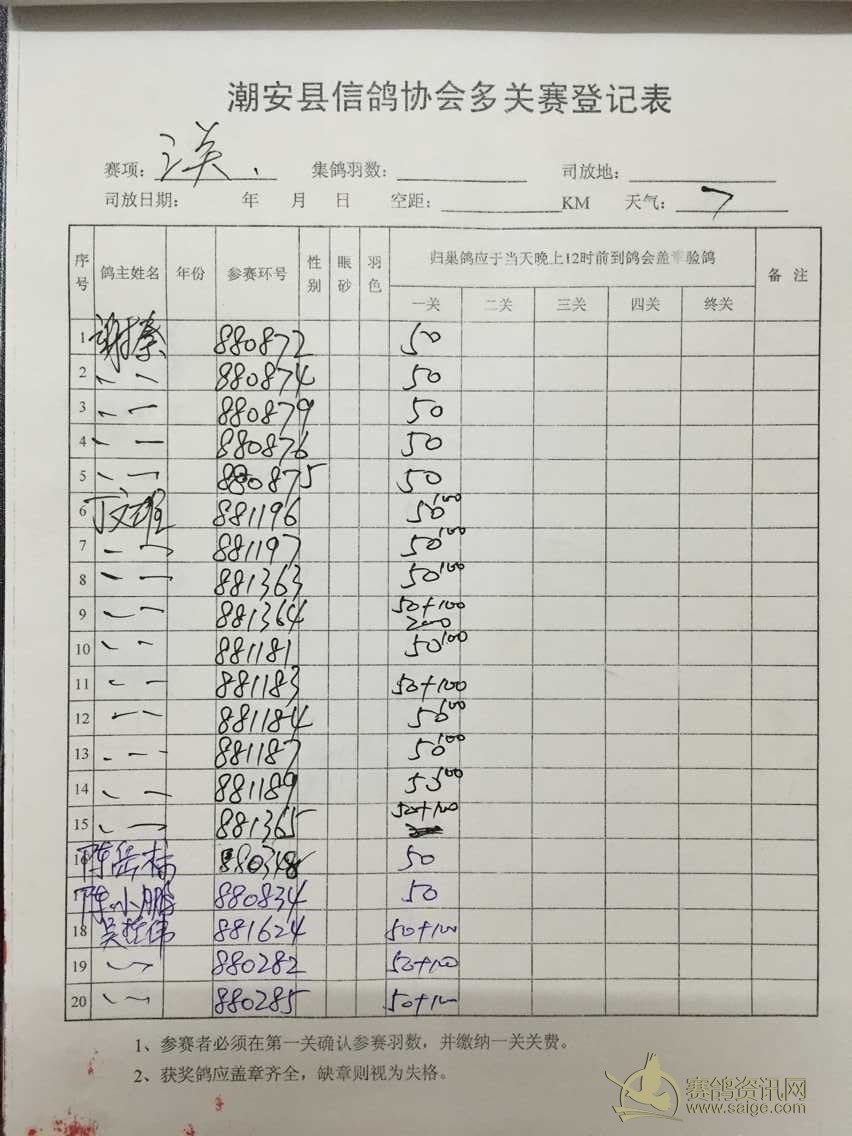 潮安县信鸽协会多关赛登记表
赛项: 三关. 集鸽羽数: 司放地:
司放日期: 年 月 日 空距: KM 天气:
序号 鸽主姓名 年份 参赛环号 性别 眼砂 羽色 归巢鸽应于当天晚上12时前到鸽会盖章验鸽 备 注
一关 二关 三关 四关 终关
1 880872 50
2 880874 50
3 880879 50
4 880876 50
5 880875 50
6 881196 50 100
7 881197 50 100
8 881363 50 100
9 881364 50+100 200
10 881181 50 100
11 881183 50+100
12 881184 50 100
13 881187 50 100
14 881189 50 100
15 881365 50+100
16 陈岳标 50
17 陈小鹏 880834 50
18 吴哲伟 881624 50+100
19 880282 50+100
20 880285 50+100
1、参赛者必须在第一关确认参赛羽数，并缴纳一关关费。
2、获奖鸽应盖章齐全，缺章则视为失格。
赛鸽资讯网
www.saige.com